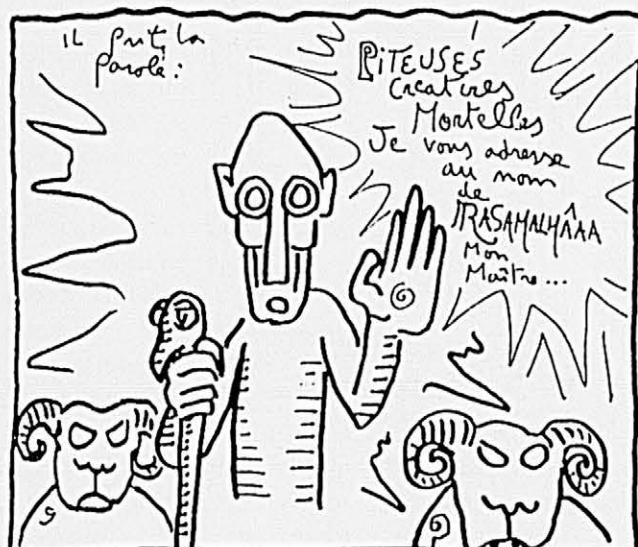 IL prit la
parole:
PITEUSES
Créatures
Mortelles
Je vous adresse
au nom
de
IRASAMALHÂAA
Mon
Maître...